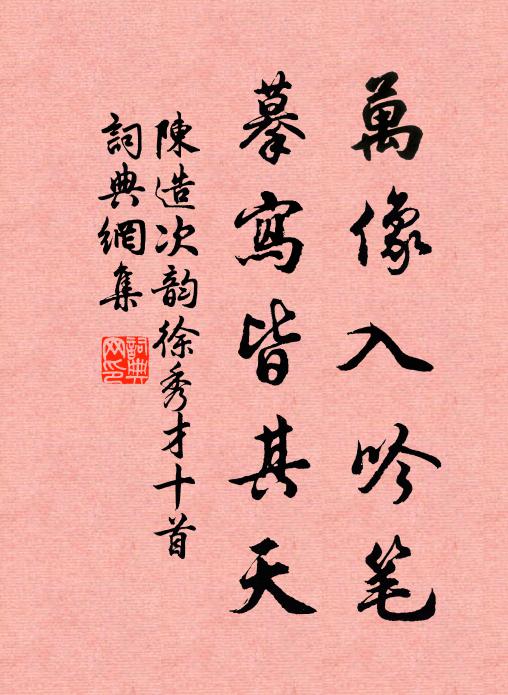 萬像入吟笔
摹寫皆其天
陳造次韵徐秀才十首
詞典網集
詞典网印